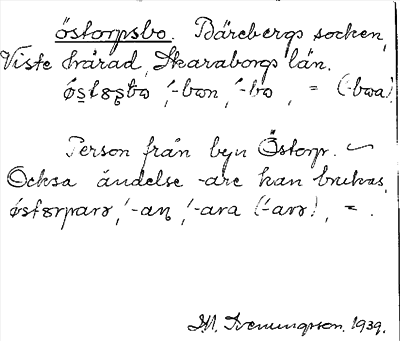 östorpsbo. Bärebergs socken,
Viste härad, Skaraborgs län.
östorpsbo, -bon, -bo, = (-boa).
Person från byn Östorp. ~
Också ändelse -are kan brukas,
östorparə, -aṇ, -ara (-arə), = .
Sveningsson. 1939.